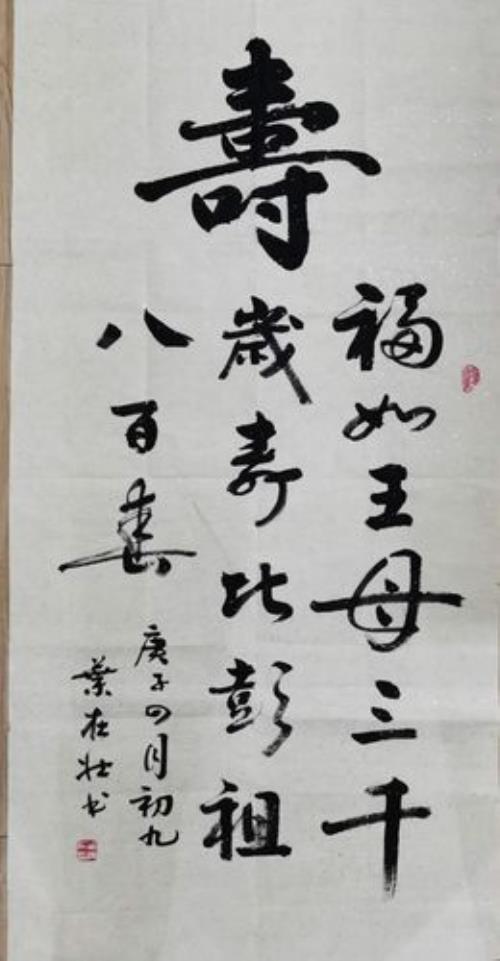 壽
福如王母三千
歲寿比彭祖
八百春
庚子四月初九
葉在壯书